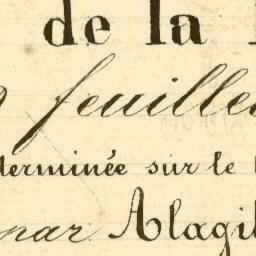 de la
feuille
terminée sur le
par Alagi